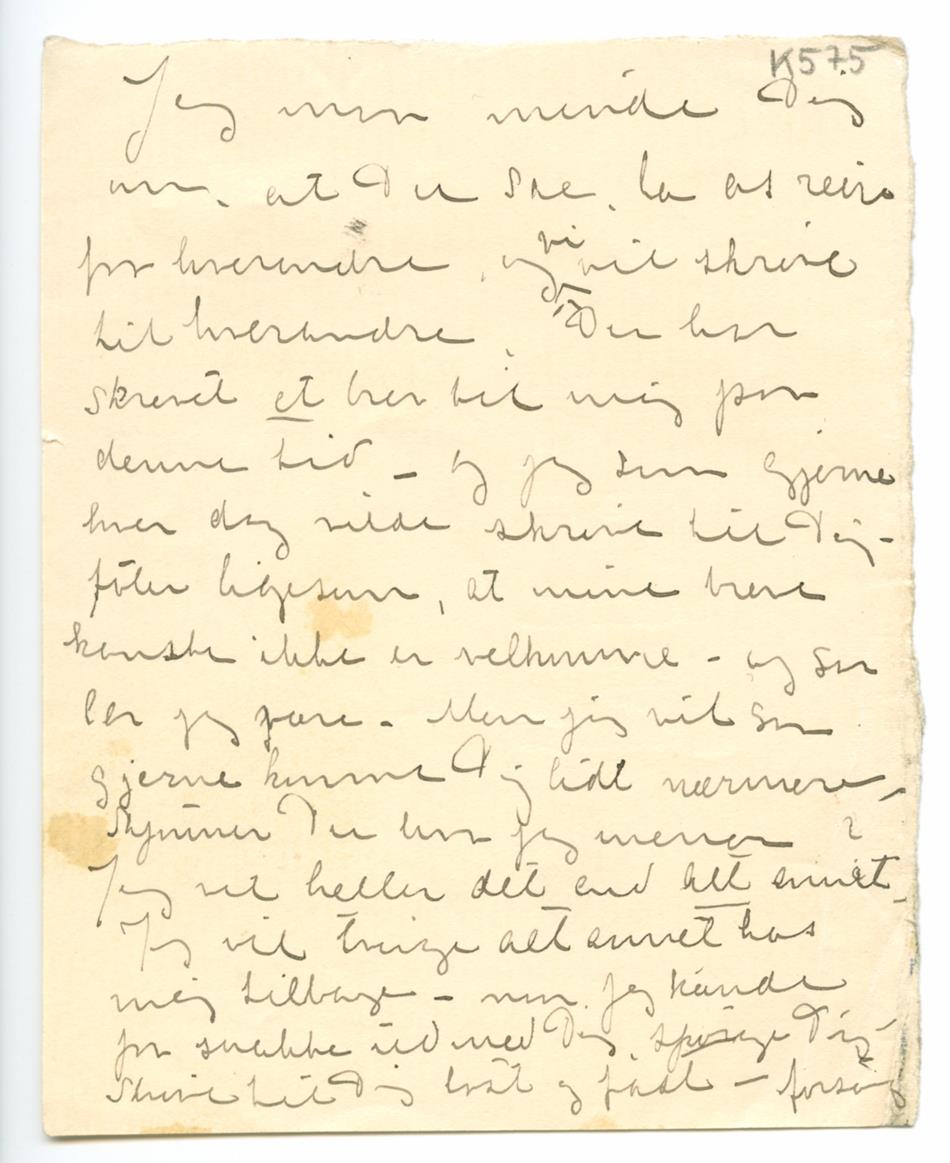 K575
Jeg maa minde Dig
om, at Du sae, la os reise
for hverandre, og vi vil skrive
til hverandre, Du har
skrevet et brev til mig paa
denne tid – og jeg som gjerne
hver dag vilde skrive til Dig –
føler ligesom, at mine breve
kanske ikke er velkomne – og saa
lar jeg være. – Men jeg vil saa
gjerne komme Dig lidt nærmere,
Skjønner Du hva jeg mener ?
Jeg vil heller det end alt annet,
Jeg vil tvinge alt annet hos
mig tilbage – naar jeg kunde
faa snakke ud med Dig, spørge Dig,
Skrive til Dig løst og fast – forsøg